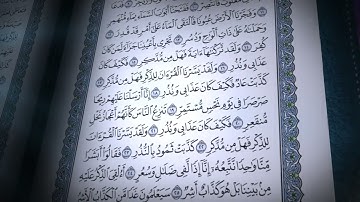 فَٱنتَصِرْ ١٠ فَفَتَحْنَآ أَبْوَٰبَ ٱلسَّمَآءِ بِمَآءٍ مُّنْهَمِرٍ
١١ وَفَجَّرْنَا ٱلْأَرْضَ عُيُونًا فَٱلْتَقَى ٱلْمَآءُ عَلَىٰٓ أَمْرٍ قَدْ قُدِرَ
١٢ وَحَمَلْنَٰهُ عَلَىٰ ذَاتِ أَلْوَٰحٍ وَدُسُرٍ ١٣ تَجْرِى بِأَعْيُنِنَا جَزَآءً لِّمَن كَانَ
كُفِرَ ١٤ وَلَقَد تَّرَكْنَٰهَآ ءَايَةً فَهَلْ مِن مُّدَّكِرٍ ١٥ فَكَيْفَ كَانَ
عَذَابِى وَنُذُرِ ١٦ وَلَقَدْ يَسَّرْنَا ٱلْقُرْءَانَ لِلذِّكْرِ فَهَلْ مِن مُّدَّكِرٍ ١٧
كَذَّبَتْ عَادٌ فَكَيْفَ كَانَ عَذَابِى وَنُذُرِ ١٨ إِنَّآ أَرْسَلْنَا عَلَيْهِمْ رِيحًا
صَرْصَرًا فِى يَوْمِ نَحْسٍ مُّسْتَمِرٍّ ١٩ تَنزِعُ ٱلنَّاسَ كَأَنَّهُمْ أَعْجَازُ نَخْلٍ
مُّنقَعِرٍ ٢٠ فَكَيْفَ كَانَ عَذَابِى وَنُذُرِ ٢١ وَلَقَدْ يَسَّرْنَا ٱلْقُرْءَانَ
لِلذِّكْرِ فَهَلْ مِن مُّدَّكِرٍ ٢٢ كَذَّبَتْ ثَمُودُ بِٱلنُّذُرِ ٢٣ فَقَالُوٓا۟ أَبَشَرًا
مِّنَّا وَٰحِدًا نَّتَّبِعُهُۥٓ إِنَّآ إِذًا لَّفِى ضَلَٰلٍ وَسُعُرٍ ٢٤ أَءُلْقِىَ ٱلذِّكْرُ عَلَيْهِ
مِنۢ بَيْنِنَا بَلْ هُوَ كَذَّابٌ أَشِرٌ ٢٥ سَيَعْلَمُونَ غَدًا مَّنِ ٱلْكَذَّابُ ٱلْأَشِرُ